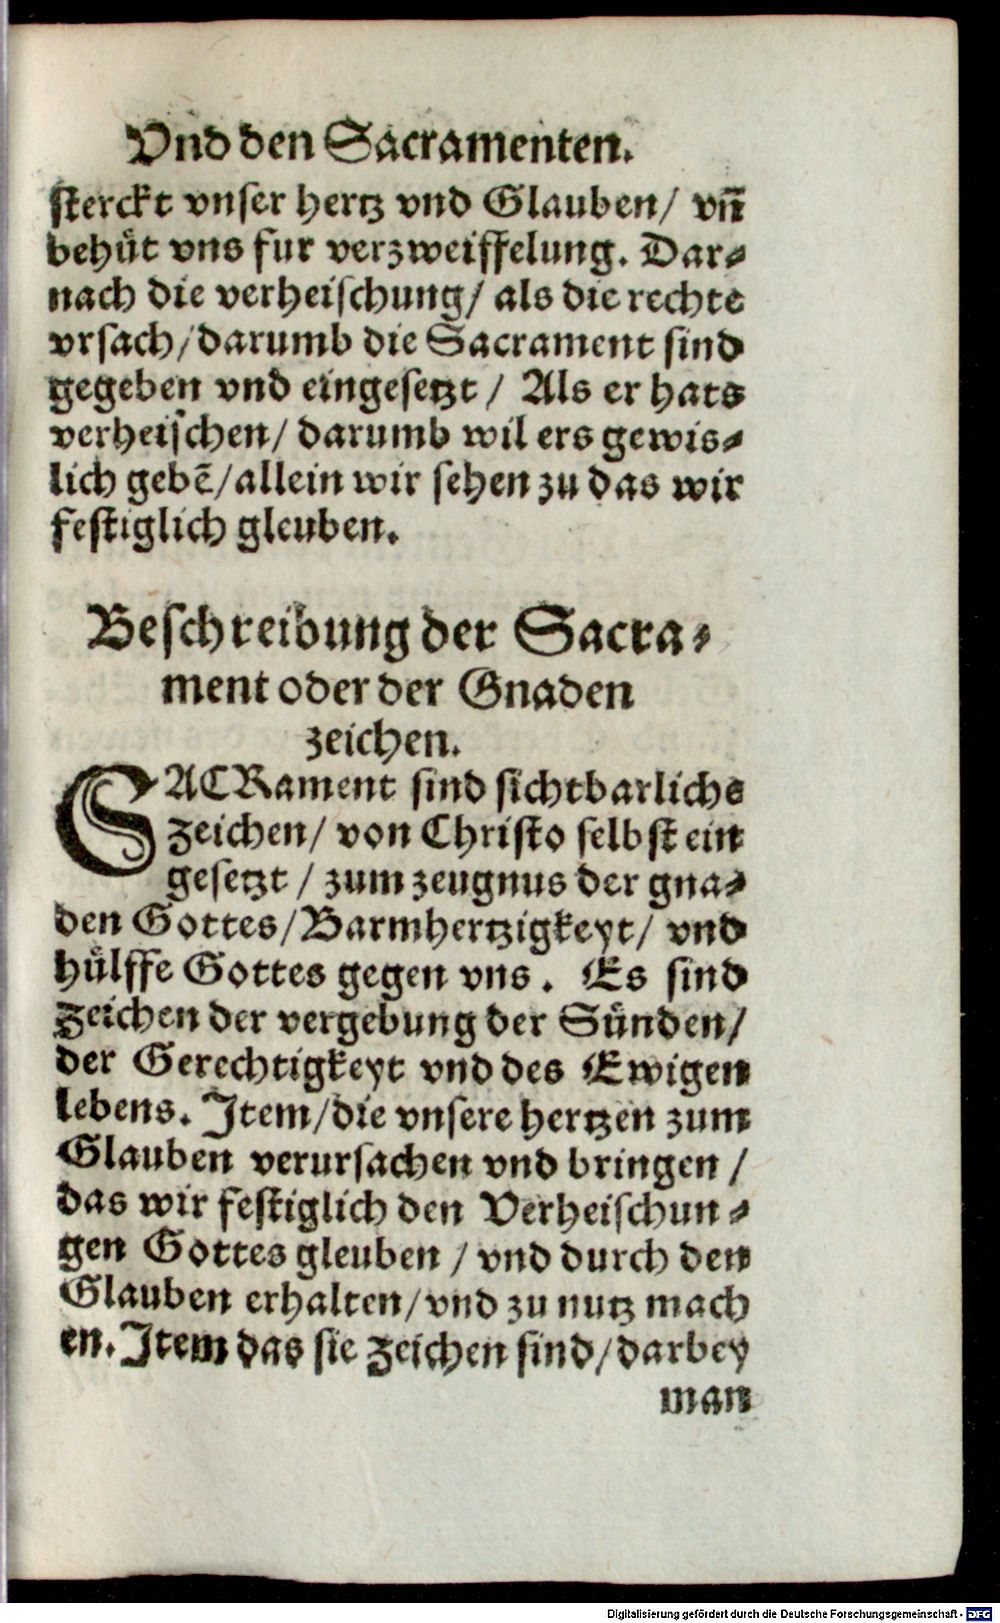 Vnd den Sacramenten.
sterckt vnser hertz vnd Glauben/ vñ
behüt vns fur verzweiffelung. Dar-
nach die verheischung/ als die rechte
vrsach/darumb die Sacrament sind
gegeben vnd eingesetzt / Als er hats
verheischen/ darumb wil ers gewis-
lich gebē/allein wir sehen zu das wir
festiglich gleuben.
Beschreibung der Sacra-
ment oder der Gnaden
zeichen.
SACRament sind sichtbarliche
zeichen/ von Christo selbst ein
gesetzt / zum zeugnus der gna-
den Gottes/Barmhertzigkeyt/ vnd
hülffe Gottes gegen vns. Es sind
zeichen der vergebung der Sünden/
der Gerechtigkeyt vnd des Ewigen
lebens. Item/die vnsere hertzen zum
Glauben verursachen vnd bringen /
das wir festiglich den Verheischun-
gen Gottes gleuben / vnd durch den
Glauben erhalten/vnd zu nutz mach
en. Item das sie zeichen sind/darbey
man
Digitalisierung gefördert durch die Deutsche Forschungsgemeinschaft - DFG